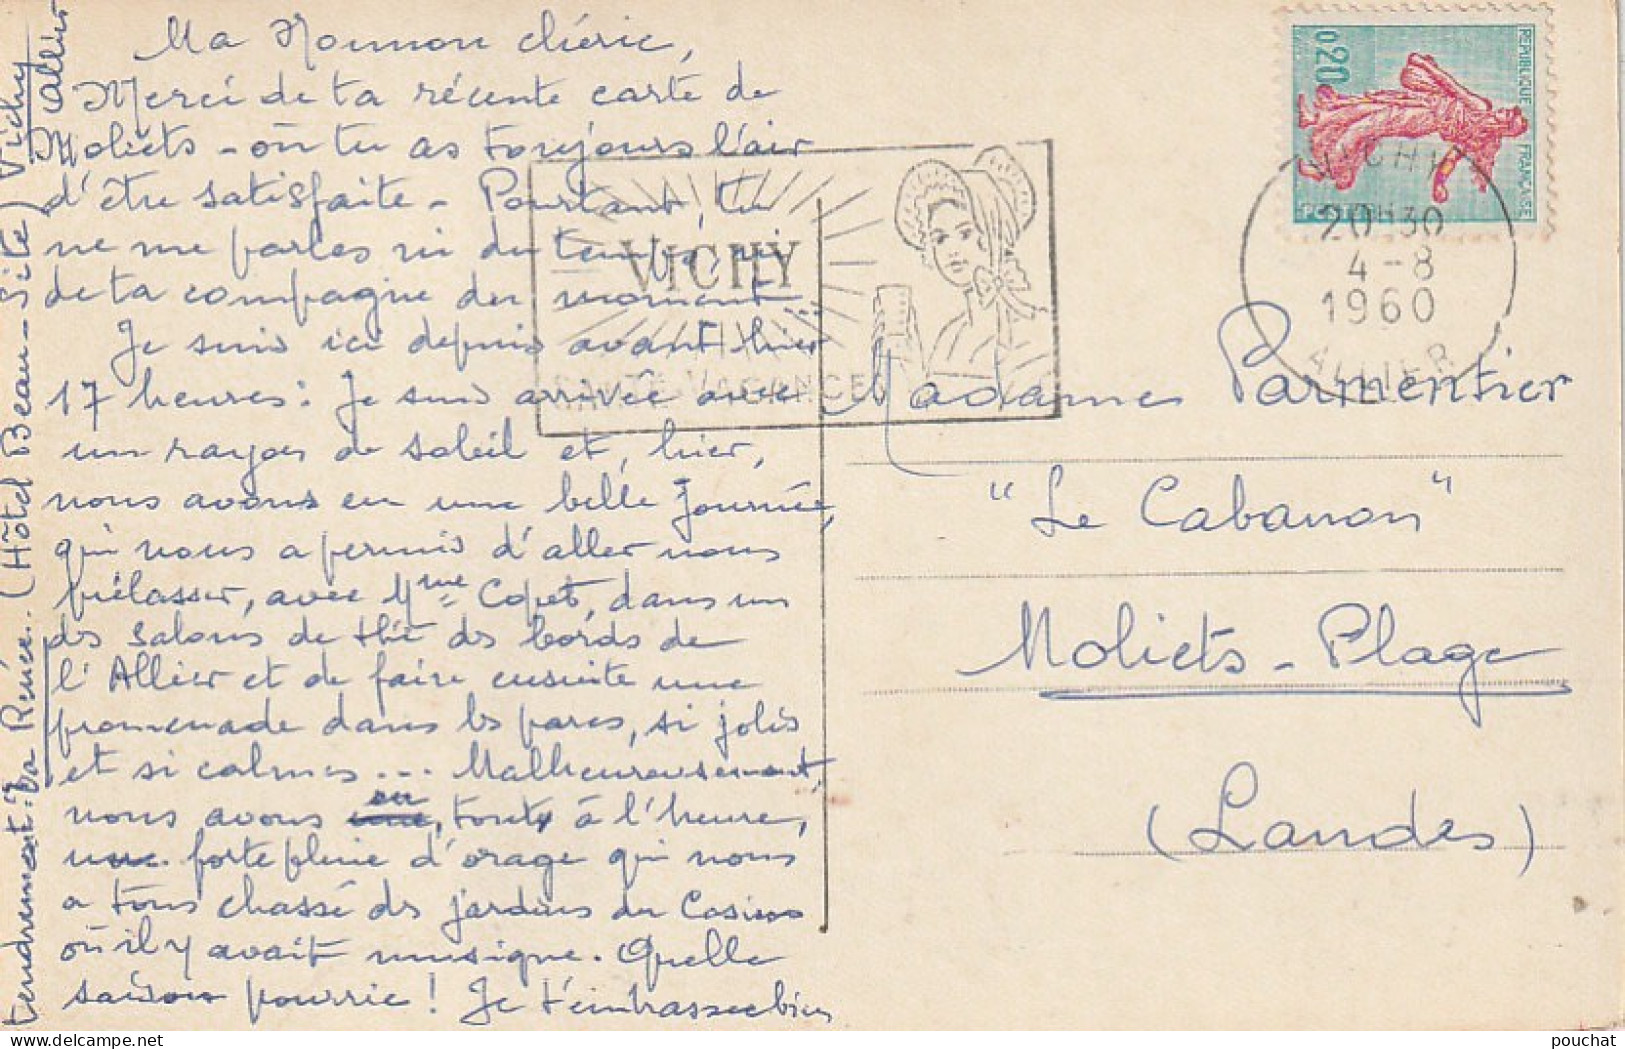 Ma Moumou chérie,
Merci de ta récente carte de
Moliets - où tu as toujours l'air
d'être satisfaite - Pourtant, tu
ne me parles ni du temps, ni
de ta compagne du moment...
Je suis ici depuis avant hier
17 heures: Je suis arrivée avec
un rayon de soleil et, hier,
nous avons eu une belle journée,
qui nous a permis d'aller nous
prélasser, avec Mme Copet, dans un
des salons de thé des bords de
l'Allier et de faire ensuite une
promenade dans les parcs, si jolis
et si calmes... Malheureusement,
nous avons eu, tout à l'heure,
une forte pluie d'orage qui nous
a tous chassé des jardins du Casino
où il y avait musique. Quelle
saison pourrie! Je t'embrasse bien
tendrement: Ta Renée. (Hôtel Beau-Site) Vichy
Allier
REPUBLIQUE FRANÇAISE
0,20
POSTES
VICHY
20H30
4-8
1960
ALLIER
VICHY
SANTÉ VACANCES
Madame Parmentier
"Le Cabanon"
Moliets-Plage
(Landes)
pouchat